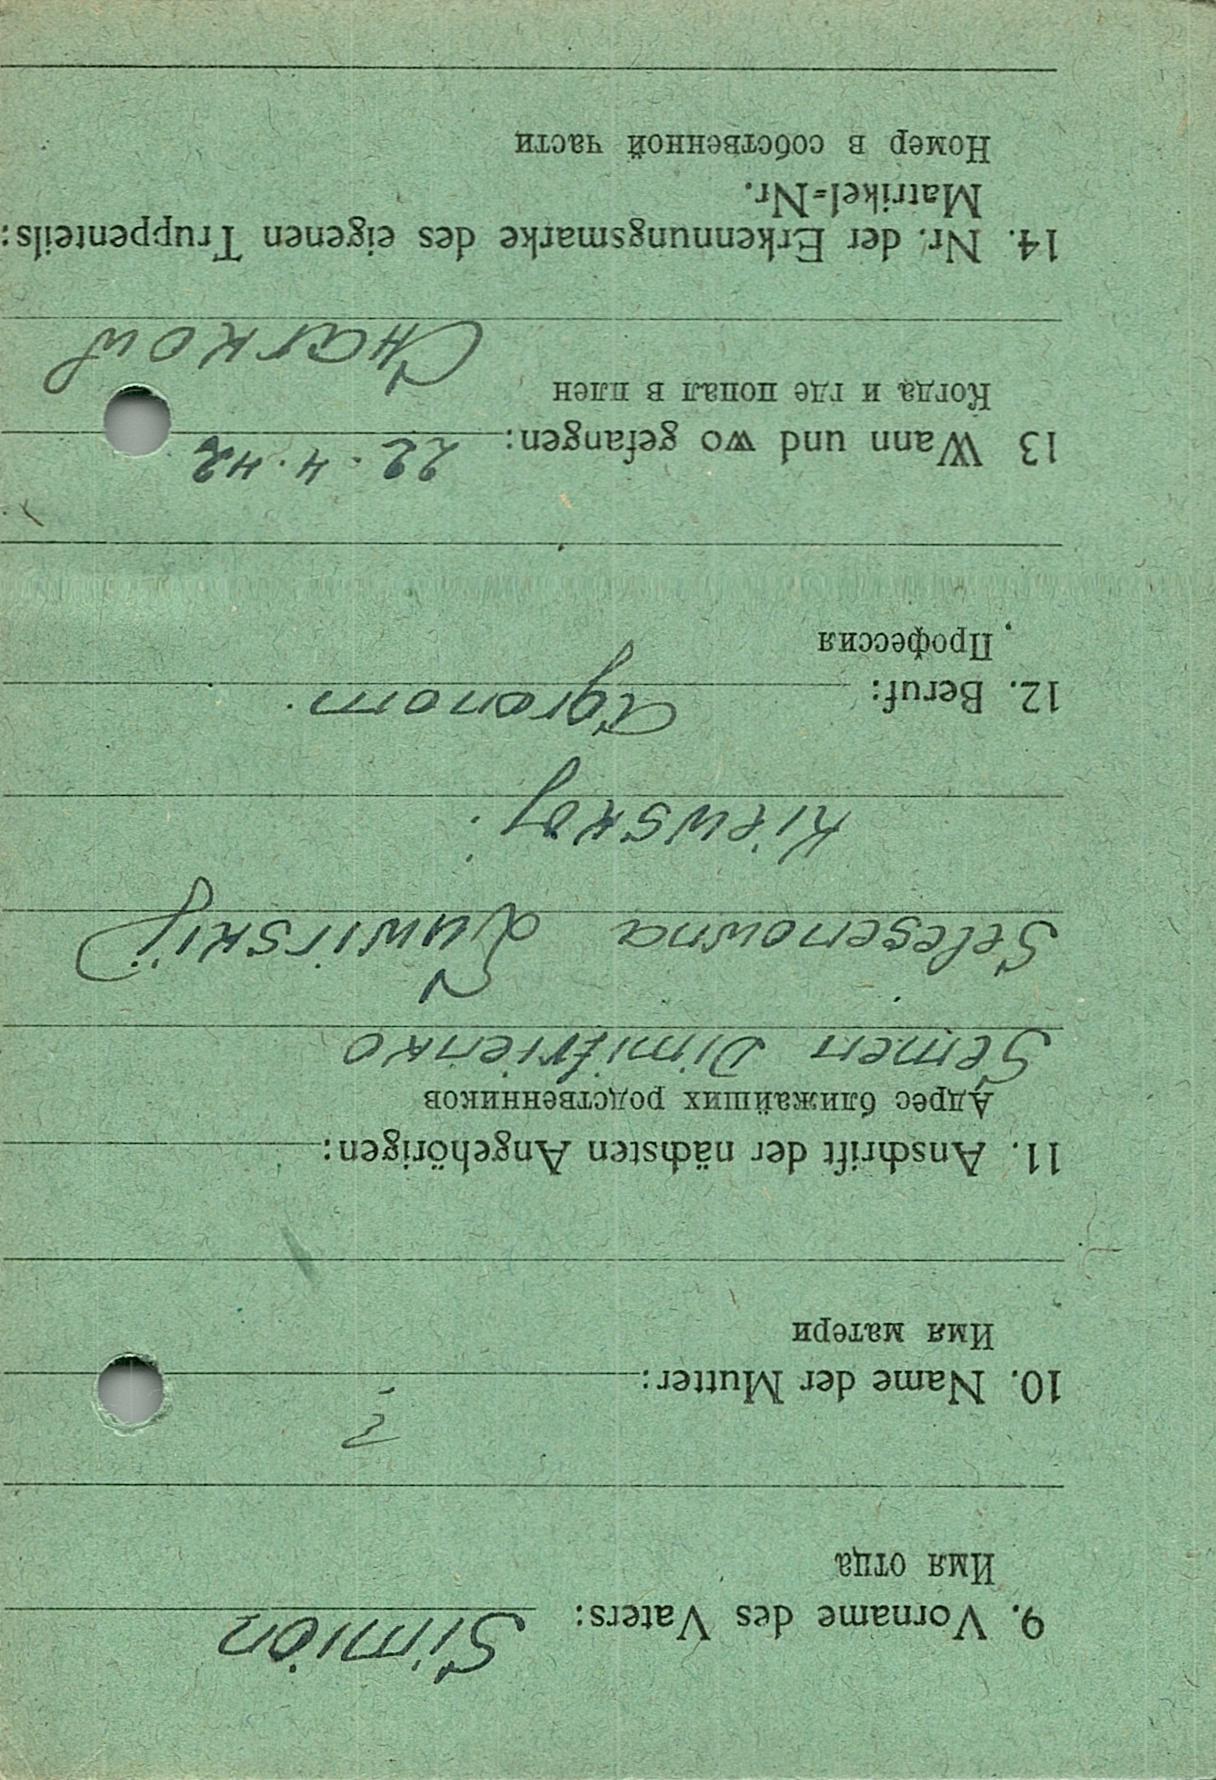 9. Vorname des Vaters: Simion
Имя отца
?
10. Name der Mutter:
Имя матери
11. Anschrift der nächsten Angehörigen:
Адрес ближайших родственников
Semen Dimitrienko
Selesenowna
Kiewskoj
12. Beruf: Agronom.
Профессия
13 Wann und wo gefangen: 22.4.42
Когда и где попал в плен
Charkow
14. Nr. der Erkennungsmarke des eigenen Truppenteils:
Matrikel=Nr.
Номер в собственной части